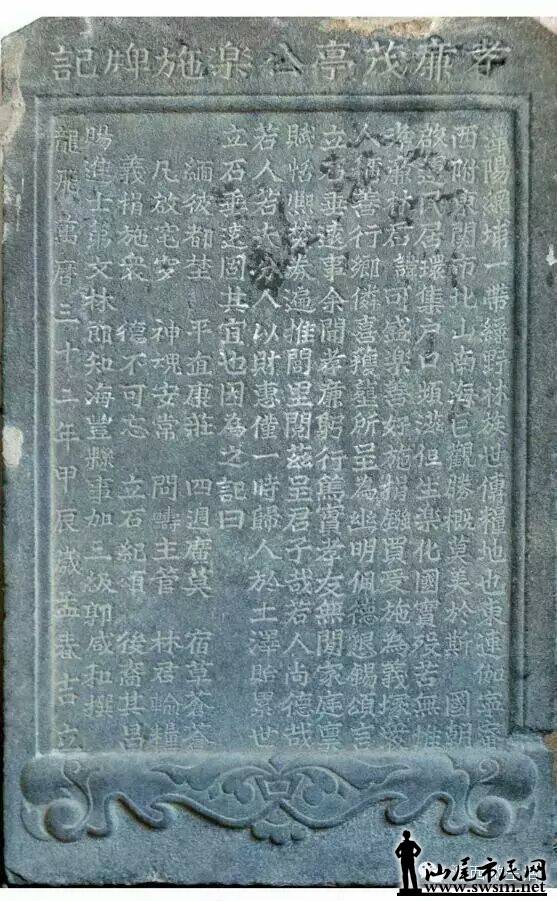 孝廉茂亭公樂施牌記
陽螺埔一帶綠野林族世傳糧地也東連伽
西附東関市北山南海巨觀勝概莫美於斯 國朝
民居環集户口頻滋但生樂化國實殁苦無
林君諱可盛樂善好施捐鏹買受施為義塚
人善行鄉僯喜獲龍所呈為幽明佩德懇錫頌言
立石垂遠事余聞孝廉躬行篤實孝友無閒家庭
賦怡熙券遍推閭里閱茲呈君子哉若人尚德哉
若人若夫分人以財惠僅一時歸人於土澤貽累世
立石垂遠固其宜也因為之記曰
緬彼都埜 平宜康莊 四週廣莫 宿草蒼蒼
凡放窀穸 神魂安常 問疇主管 林君輸糧
義捐施衆 德不可忘 立石紀頌 後裔其昌
賜進士第文林郎知海豐縣事加三級郭咸和撰
龍飛萬曆三十二年甲辰歲孟春吉立
汕尾市民网
www.swsm.net